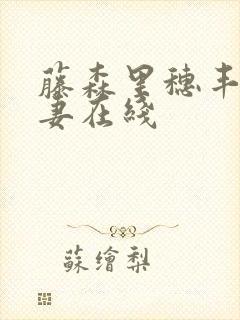 藤森里穗丰
妻在綫
蘇繪梨